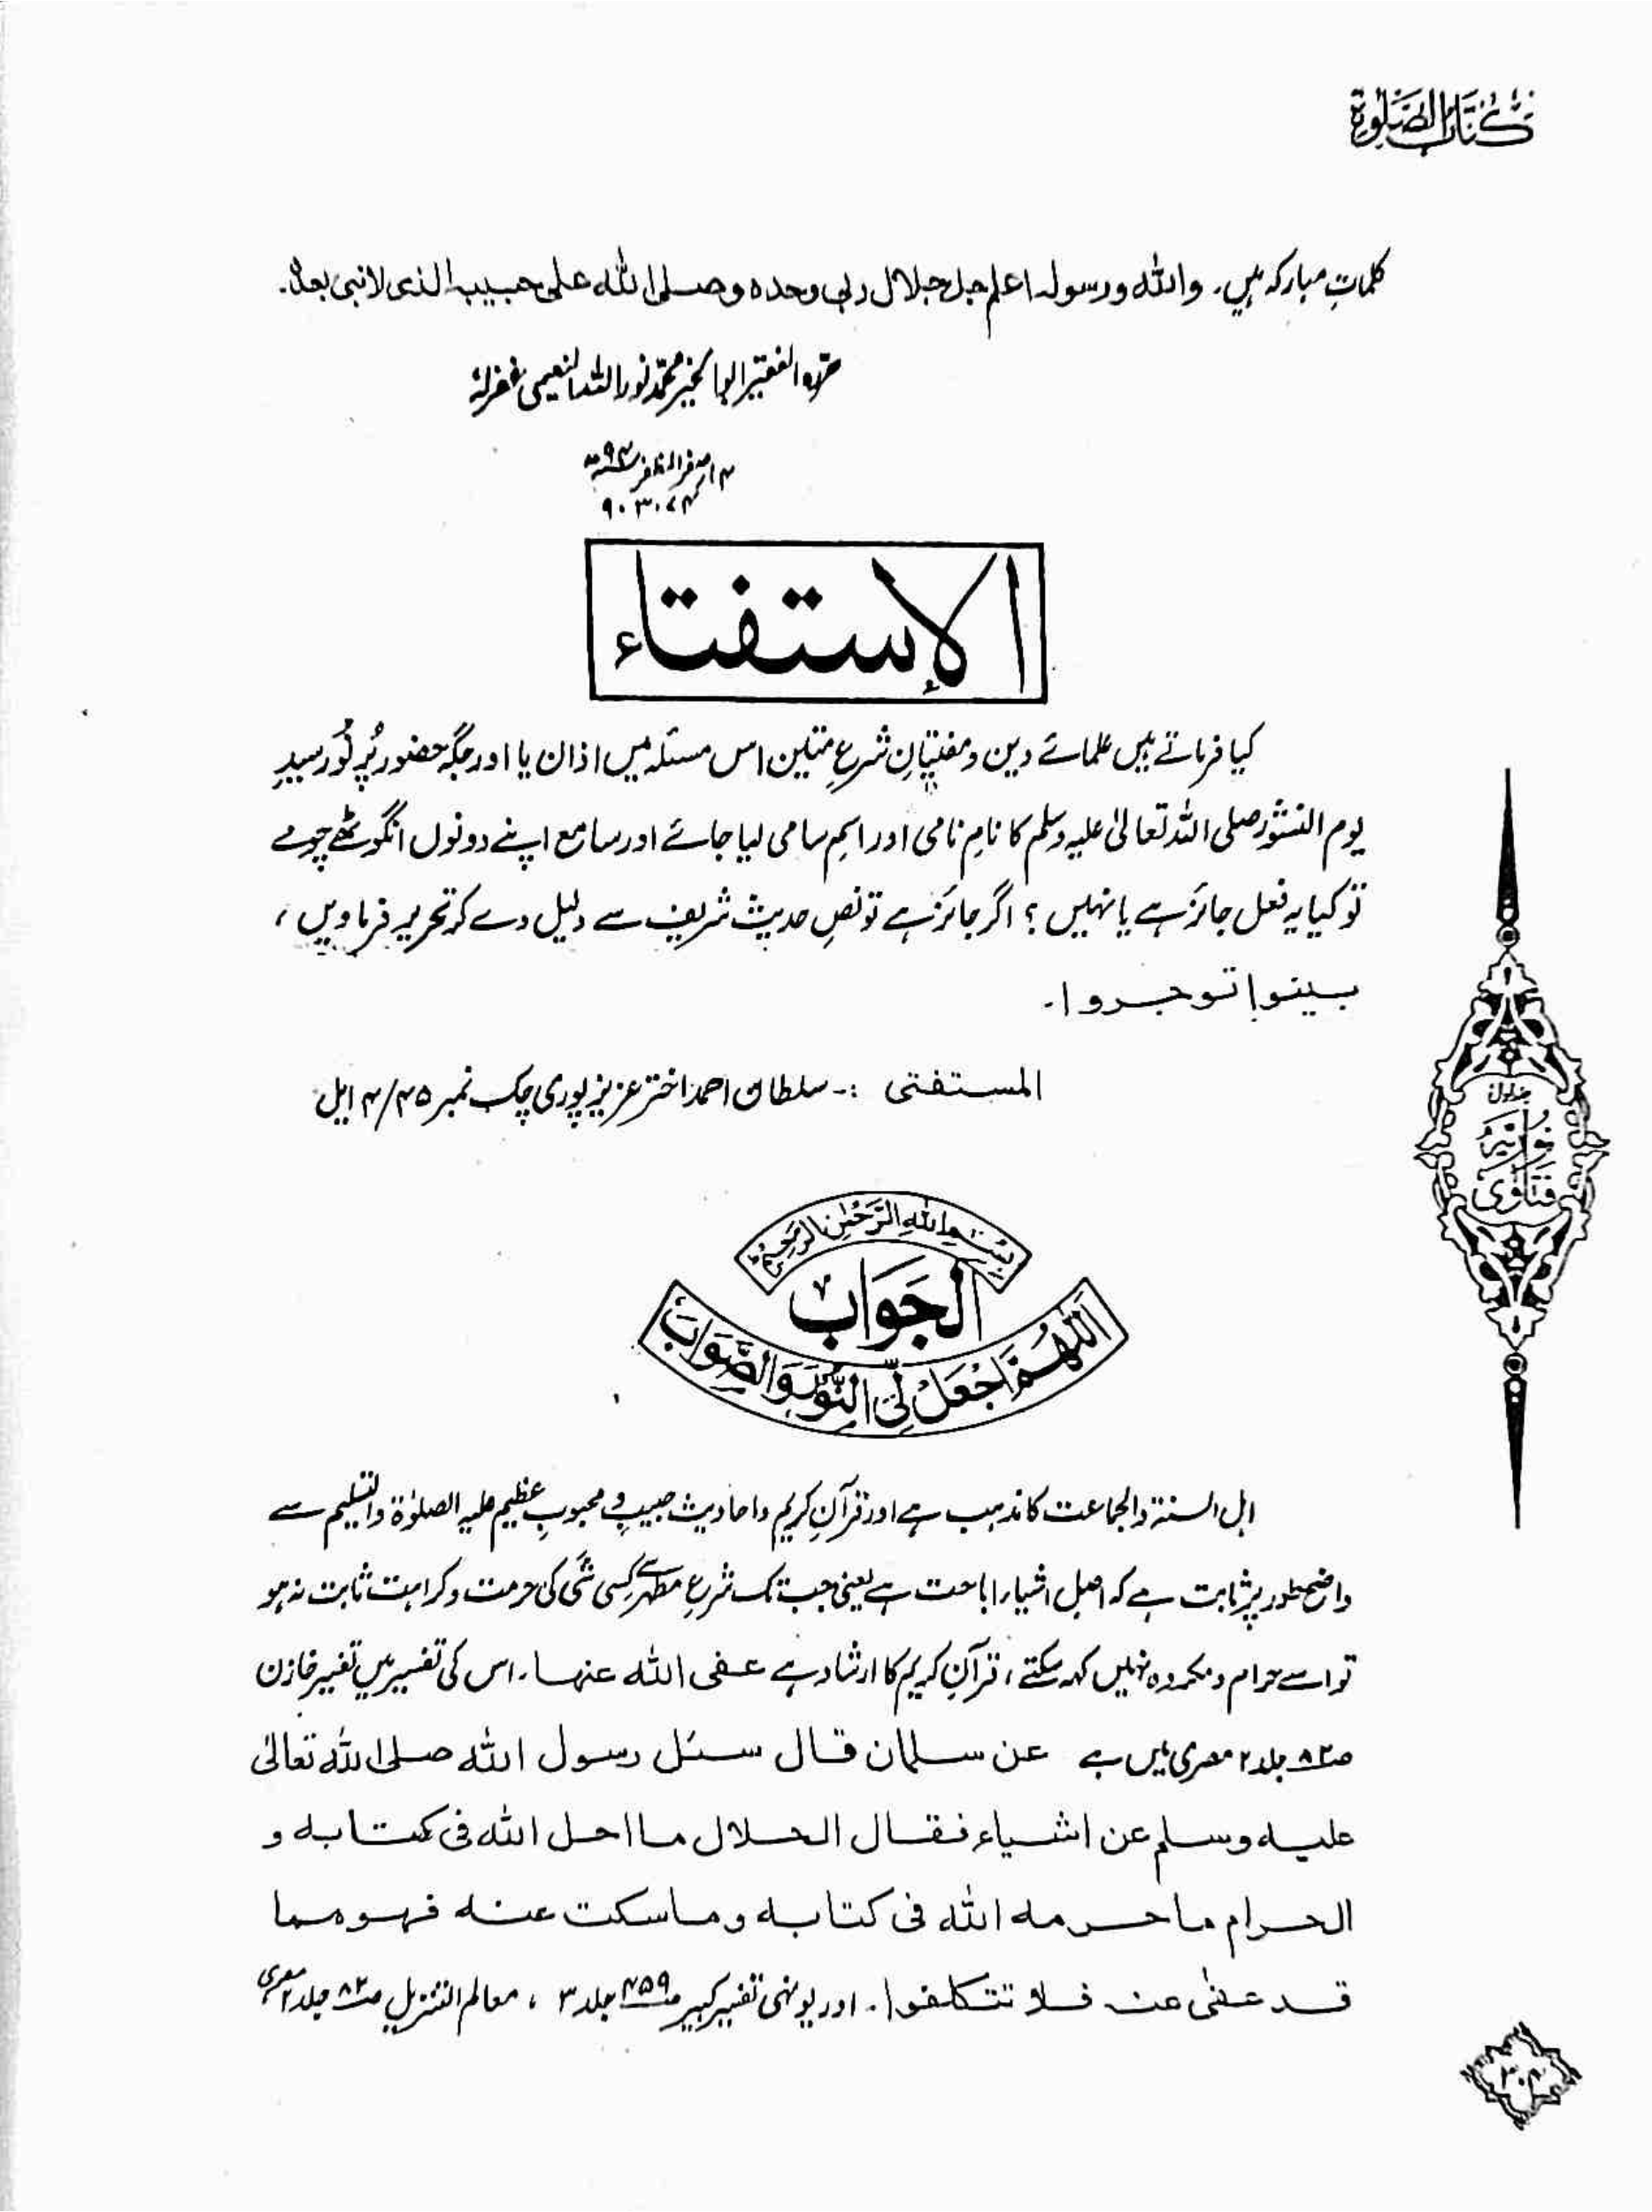 كتاب الصلوة
کلماتِ مبارکہ ہیں۔ واللہ ورسولہ اعلم جل جلال ربی وحدہ وصلی اللہ علی حبیبہ الذی لا نبی بعدہ۔
حررہ الفقیر ابو الخیر محمد نور اللہ النعیمی غفرلہٗ
۱۴ صفر المظفر ۹۴ھ
۹۔۳۔۷۴
الإستفتاء
کیا فرماتے ہیں علمائے دین و مفتیانِ شرعِ متین اس مسئلہ میں اذان یا اور جگہ حضور پُر نُور سیدِ
یوم النشور صلی اللہ تعالیٰ علیہ وسلم کا نامِ نامی اور اسمِ سامی لیا جائے اور سامع اپنے دونوں انگوٹھے چومے
تو کیا یہ فعل جائز ہے یا نہیں ؟ اگر جائز ہے تو نصِ حدیث شریف سے دلیل دے کر تحریر فرماویں ،
بینوا توجروا۔
المستفتی :۔ سلطان احمد اختر عزیز پوری چک نمبر ۴۵/۴ ایل
بِسْمِ اللهِ الرَّحْمٰنِ الرَّحِيْمِ
الجَوَابُ
اَللّٰهُمَّ اجْعَلْ لِّىَ النُّوْرَ وَالصَّوَابَ
جلد اول
نُوریّہ
فَتَاوٰی
اہل السنۃ والجماعت کا مذہب ہے اور قرآنِ کریم و احادیث حبیب و محبوبِ عظیم علیہ الصلوٰۃ والتسلیم سے
واضح طور پر ثابت ہے کہ اصل اشیاء اباحت ہے یعنی جب تک شرعِ مطہر سے کسی شَی کی حرمت و کراہت ثابت نہ ہو
تو اسے حرام و مکروہ نہیں کہہ سکتے ، قرآنِ کریم کا ارشاد ہے عفی اللہ عنہا۔ اس کی تفسیر میں تفسیر خازن
ص۸۲ جلد ۲ مصری میں ہے عن سلمان قال سئل رسول اللہ صلی اللہ تعالیٰ
علیہ وسلم عن اشیاء فقال الحلال ما احل اللہ فی کتابہ و
الحرام ما حرمہ اللہ فی کتابہ وما سکت عنہ فہو مما
قد عفٰی عنہ فلا تتکلفوا۔ اور یونہی تفسیر کبیر ص۴۵۹ جلد ۳ ، معالم التنزیل ص۸۲ جلد ۲ مصری
۳۰۴